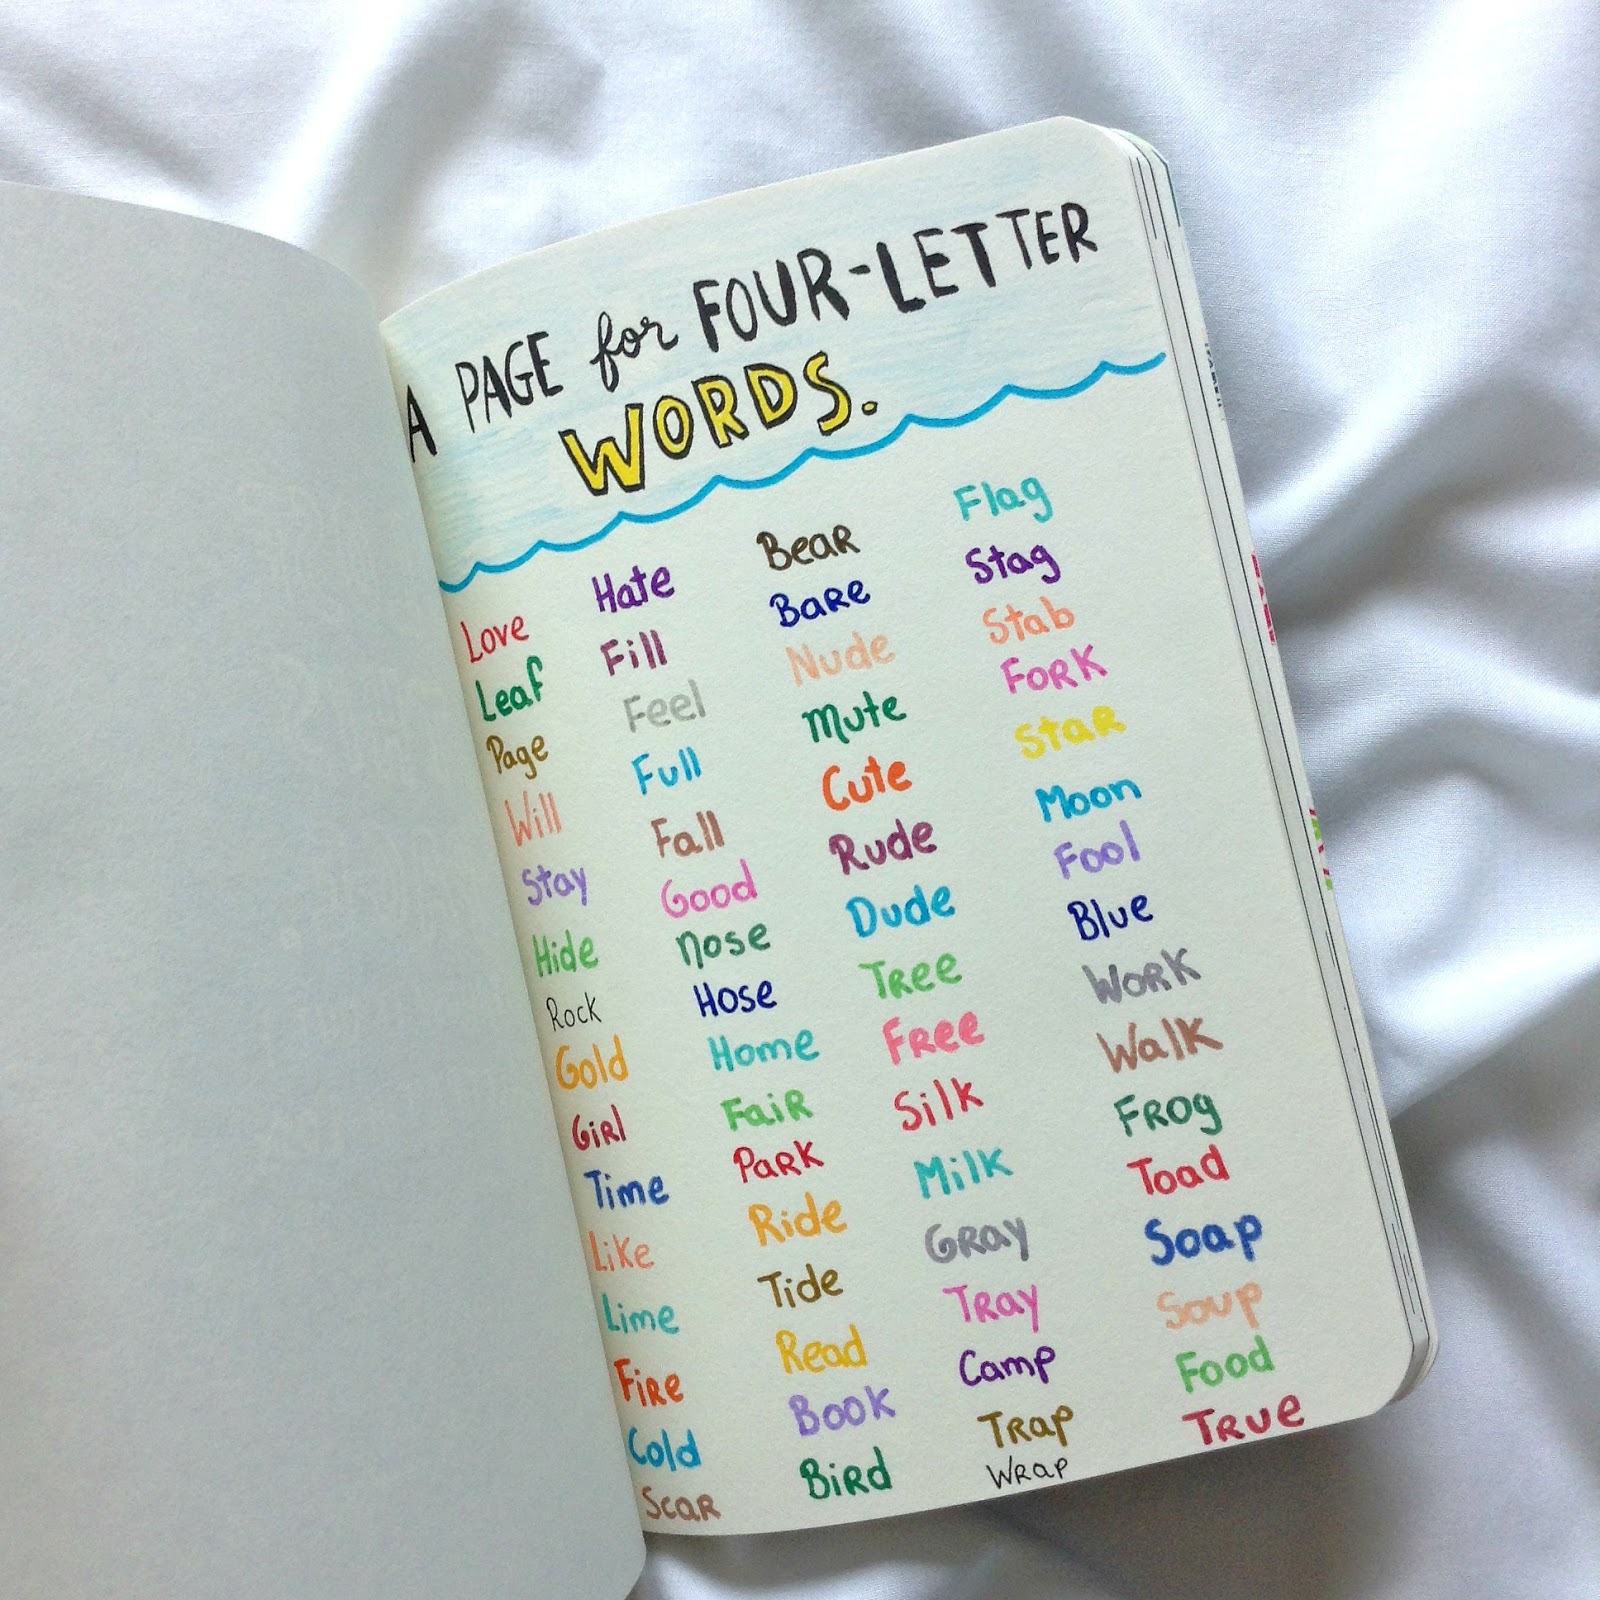 A PAGE for FOUR-LETTER
WORDS.
Love
Leaf
Page
Will
Stay
Hide
Rock
Gold
Girl
Time
Like
Lime
Fire
Cold
Scar
Hate
Fill
Feel
Full
Fall
Good
Nose
Hose
Home
Fair
Park
Ride
Tide
Read
Book
Bird
Bear
Bare
Nude
Mute
Cute
Rude
Dude
Tree
Free
Silk
Milk
Gray
Tray
Camp
Trap
Wrap
Flag
Stag
Stab
Fork
Star
Moon
Fool
Blue
Work
Walk
Frog
Toad
Soap
Soup
Food
True